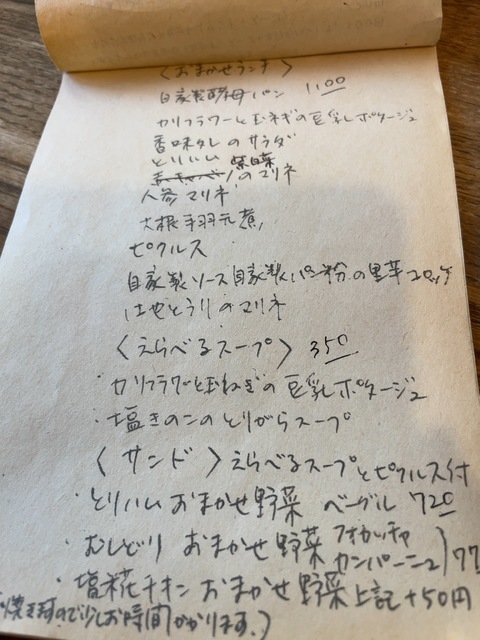 〈おまかせランチ〉
自家製酵母パン 1100
カリフラワーと玉ネギの豆乳ポタージュ
香味タレのサラダ
とりハム
紫白菜のマリネ
人参マリネ
大根手羽元煮
ピクルス
自家製ソース自家製パン粉の里芋コロッケ
はやとうりのマリネ
〈えらべるスープ〉 350
・カリフラワーと玉ねぎの豆乳ポタージュ
・塩きのこのとりがらスープ
〈サンド〉えらべるスープとピクルス付
・とりハム おまかせ野菜 ベーグル 720
・むしどり おまかせ野菜 フォカッチャ
カンパーニュ) 77
・塩糀チキン おまかせ野菜 上記+50円
焼き
ので少しお時間かかります。)